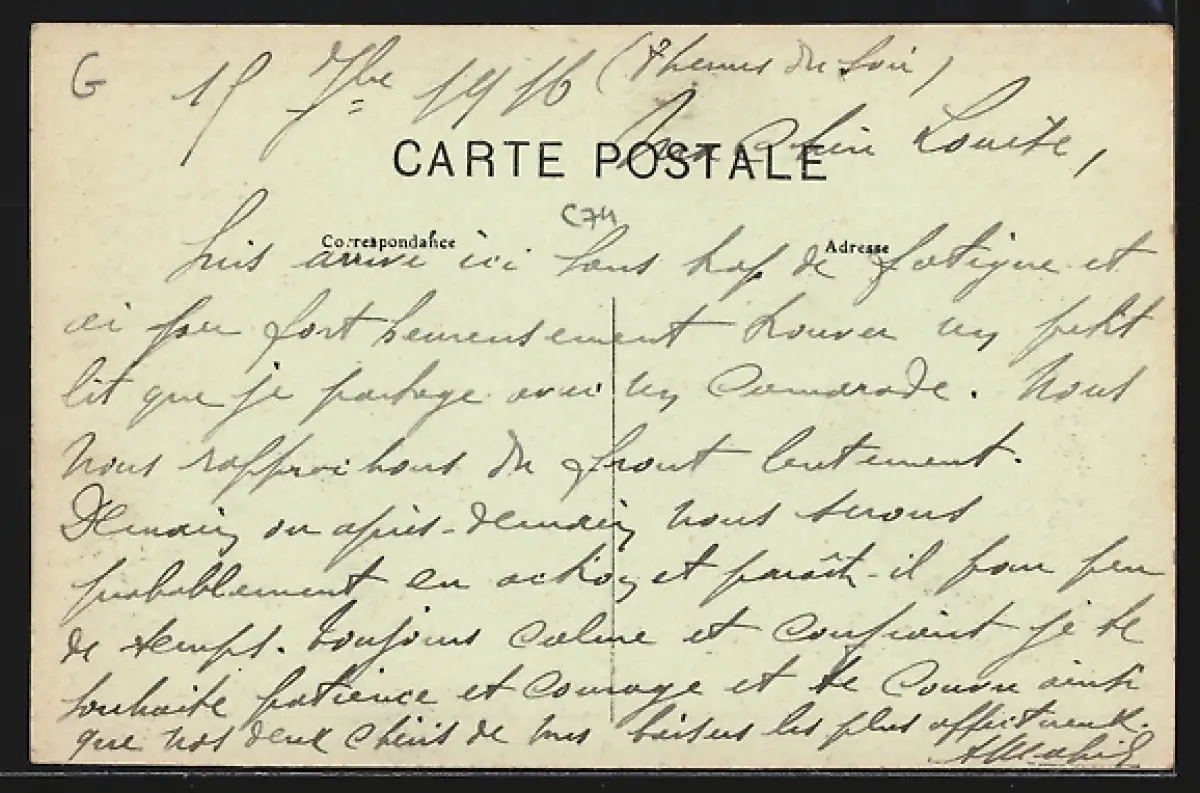 G 15 7bre 1916 (7 heures du soir)
Ma chère Louise,
CARTE POSTALE
C74
Correspondance Adresse
Suis arrivé ici sans trop de fatigue et
ai pu fort heureusement trouver un petit
lit que je partage avec un camarade. Nous
nous rapprochons du front lentement.
Demain ou après-demain nous serons
probablement en action et paraît-il pour peu
de temps. Toujours calme et confiant je te
souhaite patience et courage et te couvre ainsi
que nos deux chéris de mes baisers les plus affectueux.